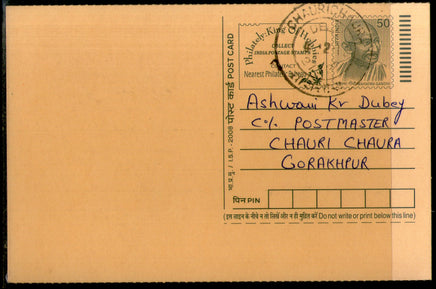 Philately-King of Hobbies
COLLECT
INDIA POSTAGE STAMPS
CONTACT
Nearest Philatelic Bureau
50
CHAURICHAURA
भा.प्र.मु. / I.S.P. - 2008 पोस्ट कार्ड POST CARD
Ashwani Kr Dubey
C/o POSTMASTER
CHAURI CHAURA
GORAKHPUR
पिन PIN
(इस लाइन के नीचे न तो लिखें और न ही मुद्रित करें Do not write or print below this line)